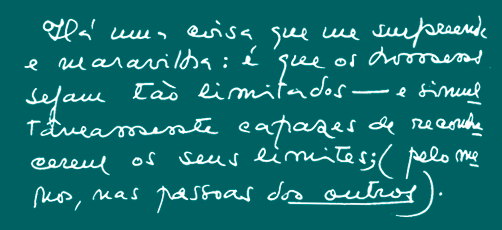 Há uma coisa que me surpreende
e maravilha: é que os homens
sejam tão limitados — e simul
tâneamente capazes de reconhe
cerem os seus limites; (pelo me
nos, nas pessoas dos outros).